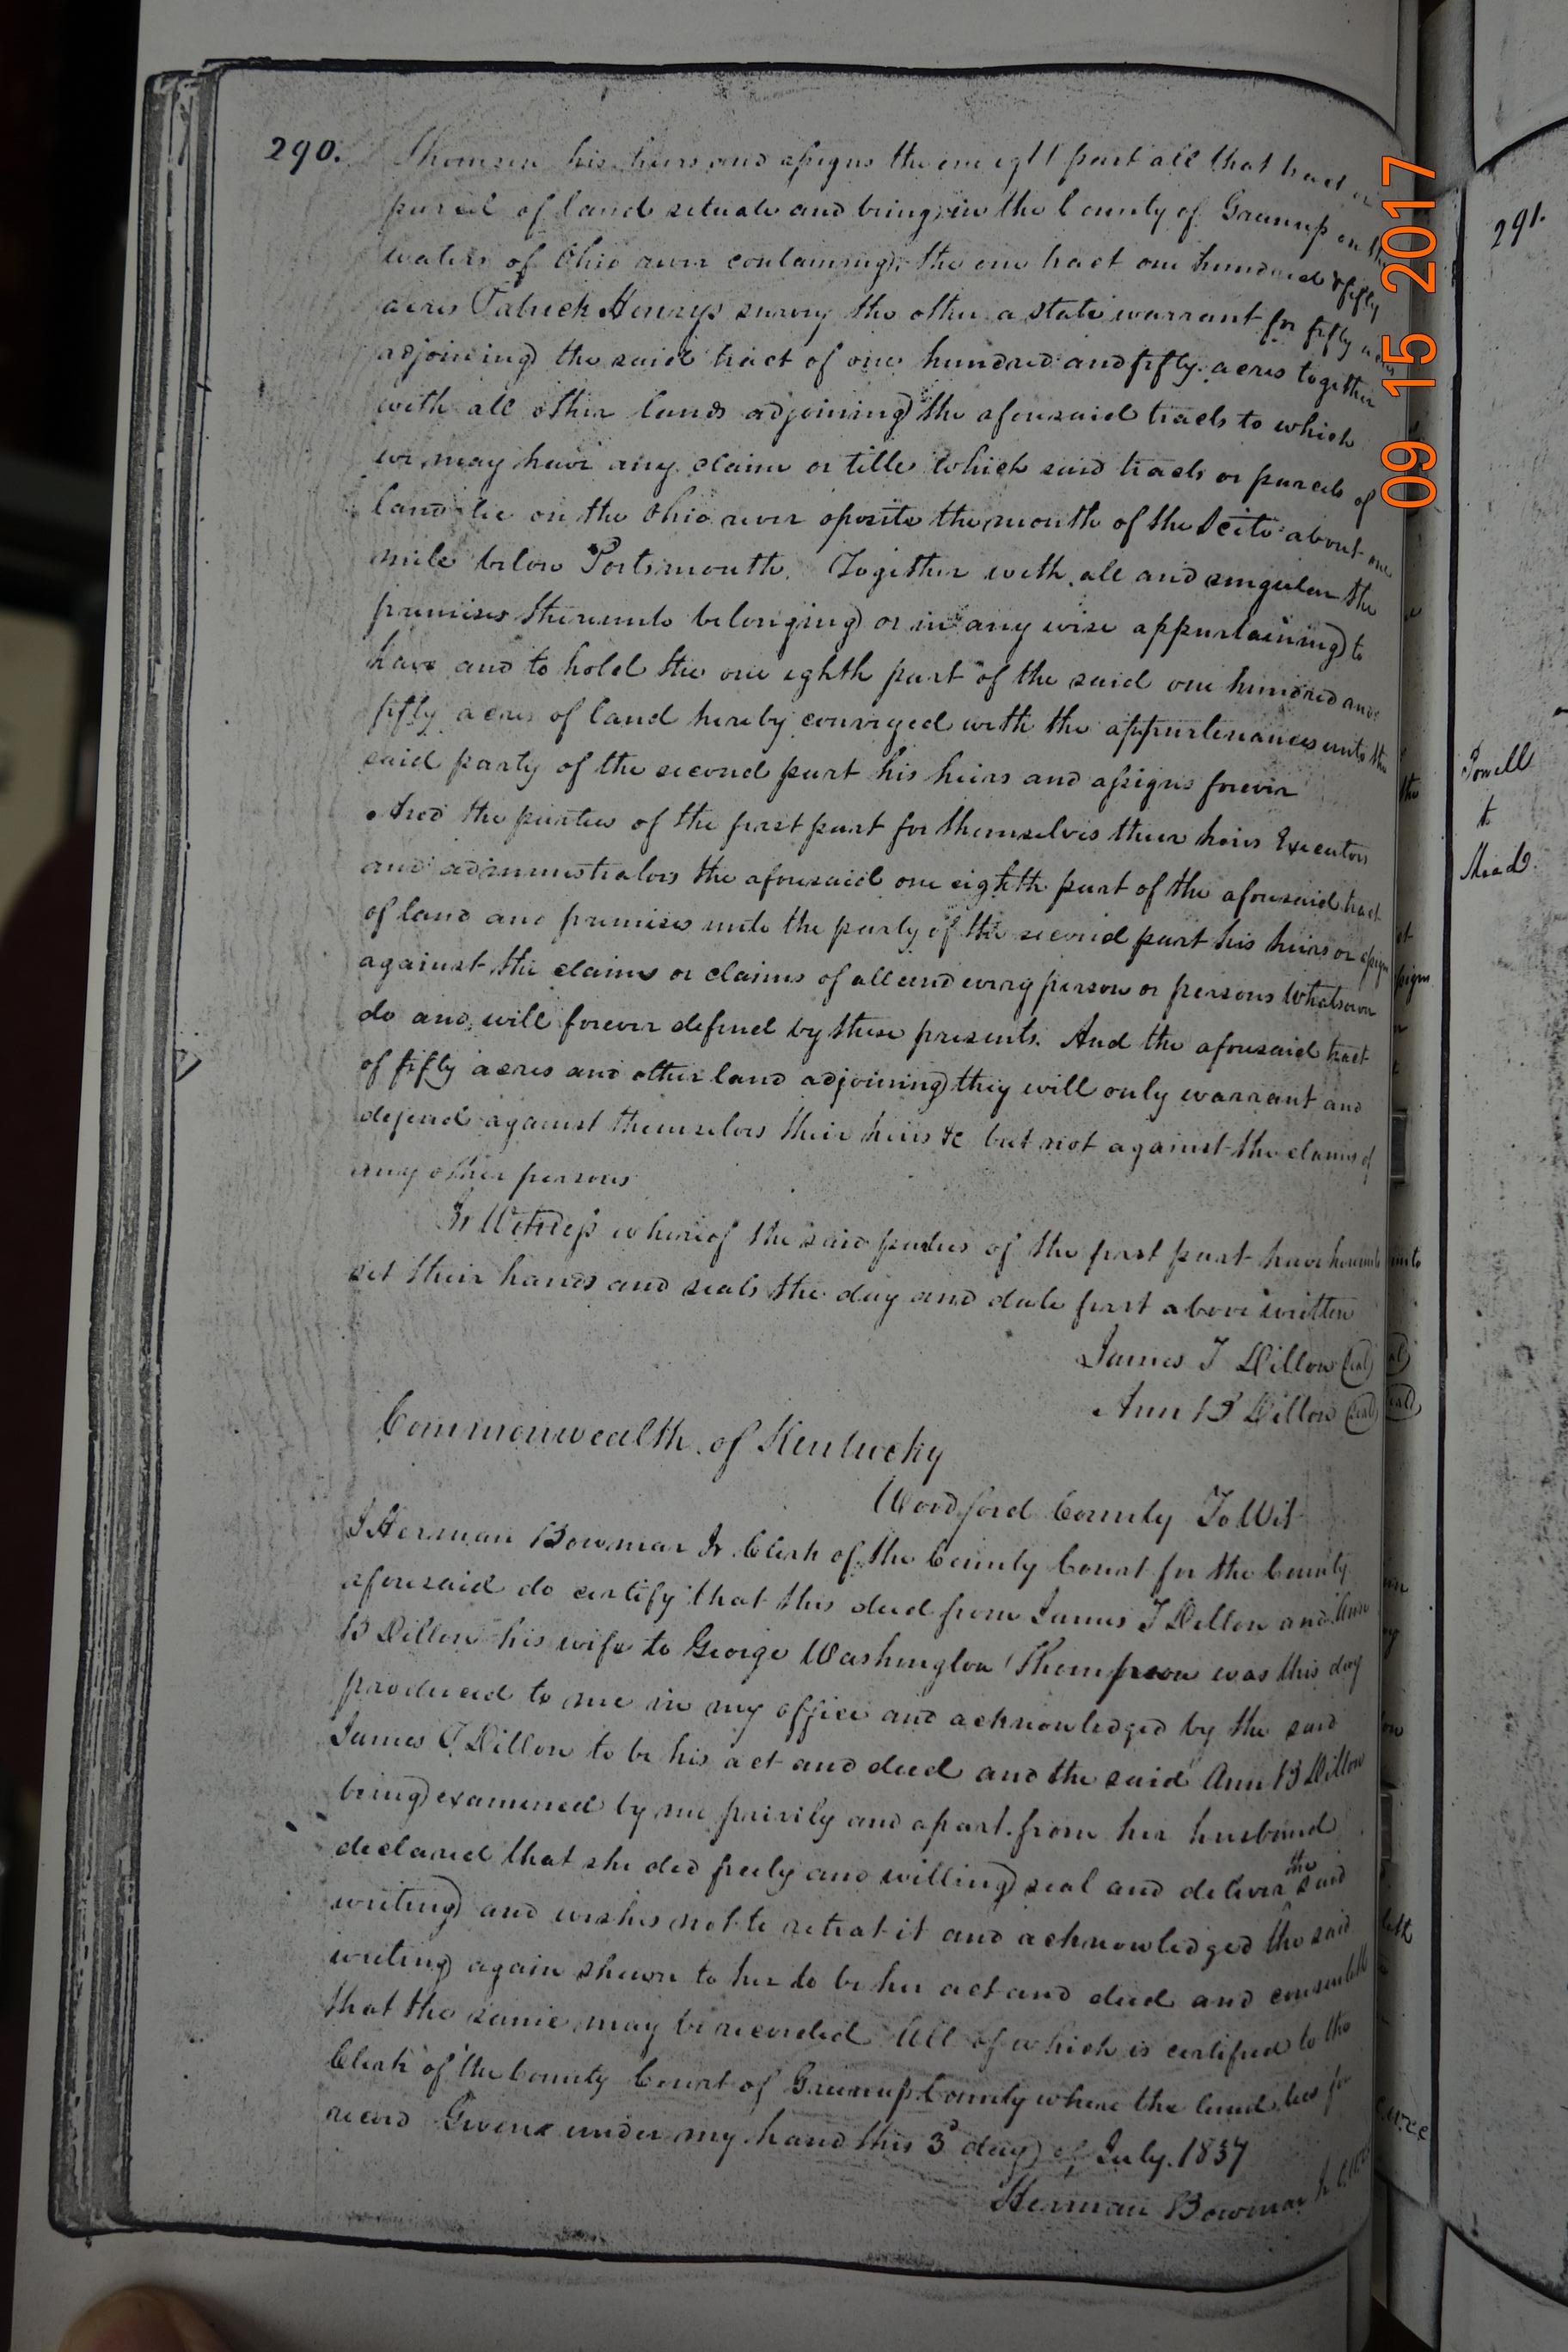 290.
Thomson his heirs and assigns the one eght part all that tract or
parcel of land situate and being in the County of Greenup on the
waters of Ohio river containing the one tract one hundred & fifty
acres Patrick Henrys survey the other a state warrant for fifty acres
adjoining the said tract of one hundred and fifty acres together
with all other lands adjoining the aforesaid tracts to which
we may have any claim or title which said tracts or parcels of
land lie on the Ohio river oposite the mouth of the Scito about one
mile below Portsmouth. Together with all and singular the
premises thereunto belonging or in any wise appurtaining to
have and to hold the one eghth part of the said one hundred and
fifty acres of land hereby conveyed with the appurtenances unto the
said party of the second part his heirs and assigns forever
And the parties of the first part for themselves their heirs Executors
and administrators the aforesaid one eighth part of the aforesaid tract
of land and premises unto the party of the second part his heirs or assigns
against the claims or claims of all and every person or persons whatsoever
do and will forever defend by these presents. And the aforesaid tract
of fifty acres and other land adjoining they will only warrant and
defend against themselves their heirs &c but not against the claims of
any other persons
In Witness whereof the said parties of the first part have hereunto
set their hands and seals the day and date first above written
James T Dillon (seal)
Ann B Dillon (seal)
Commonwealth of Kentucky
Woodford County To Wit
I Herman Bowmar Jr Clerk of the County Court for the County
aforesaid do certify that this deed from James T Dillon and Ann
B Dillon his wife to George Washington Thompson was this day
produced to me in my office and acknowledged by the said
James T Dillon to be his act and deed and the said Ann B Dillon
being examined by me privily and apart from her husband
declared that she did freely and willing seal and deliver the said
writing and wishes not to retrat it and acknowledged the said
writing again shewn to her to be her act and deed and consented
that the same may be recorded All of which is certified to the
Clerk of the County Court of Greenup County where the land lies for
record Given under my hand this 3d day of July. 1837
Herman Bowmar Jr
09 15 2017
291.
Powell
to
Mead.